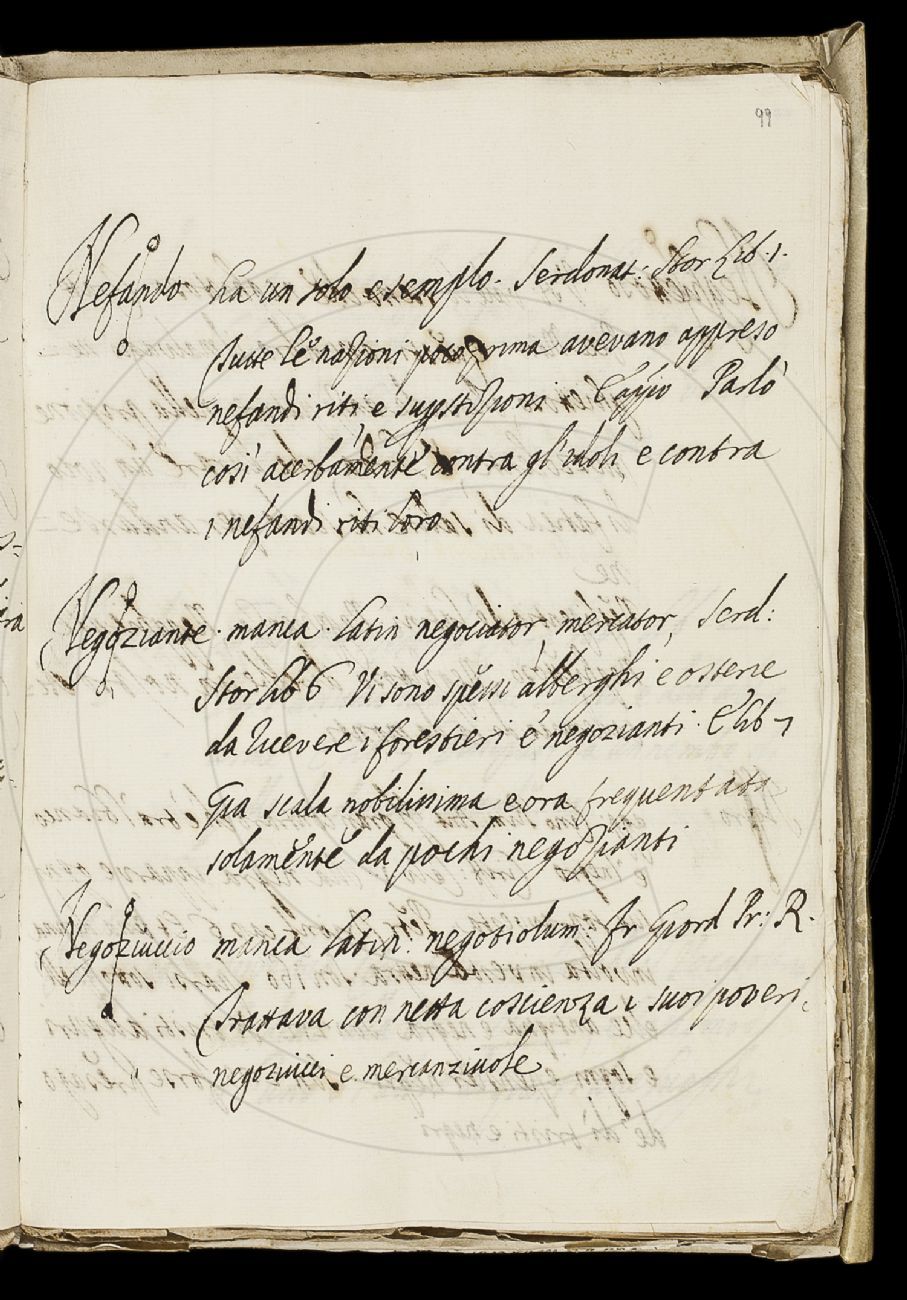 99
Nefando ha un solo esemplo. Serdonat: Stor Lib. 1.
Tutte le nazioni poco prima avevano appreso
nefandi riti, e superstizioni E appio Parlò
così acerbamente contra gl'idoli e contra
i nefandi riti loro
Negoziante. manca. Latin negociator, mercator, Serd:
Stor lib 6 Vi sono spessi alberghi e osterie
da ricevere i forestieri e negozianti. E lib 7
Già scala nobilissima e ora frequentata
solamente da pochi negozianti
Negoziuccio manca Latin: negotiolum: fr Giord Pr: R.
Trattava con netta coscienza i suoi poveri
negoziucci e mercanziuole